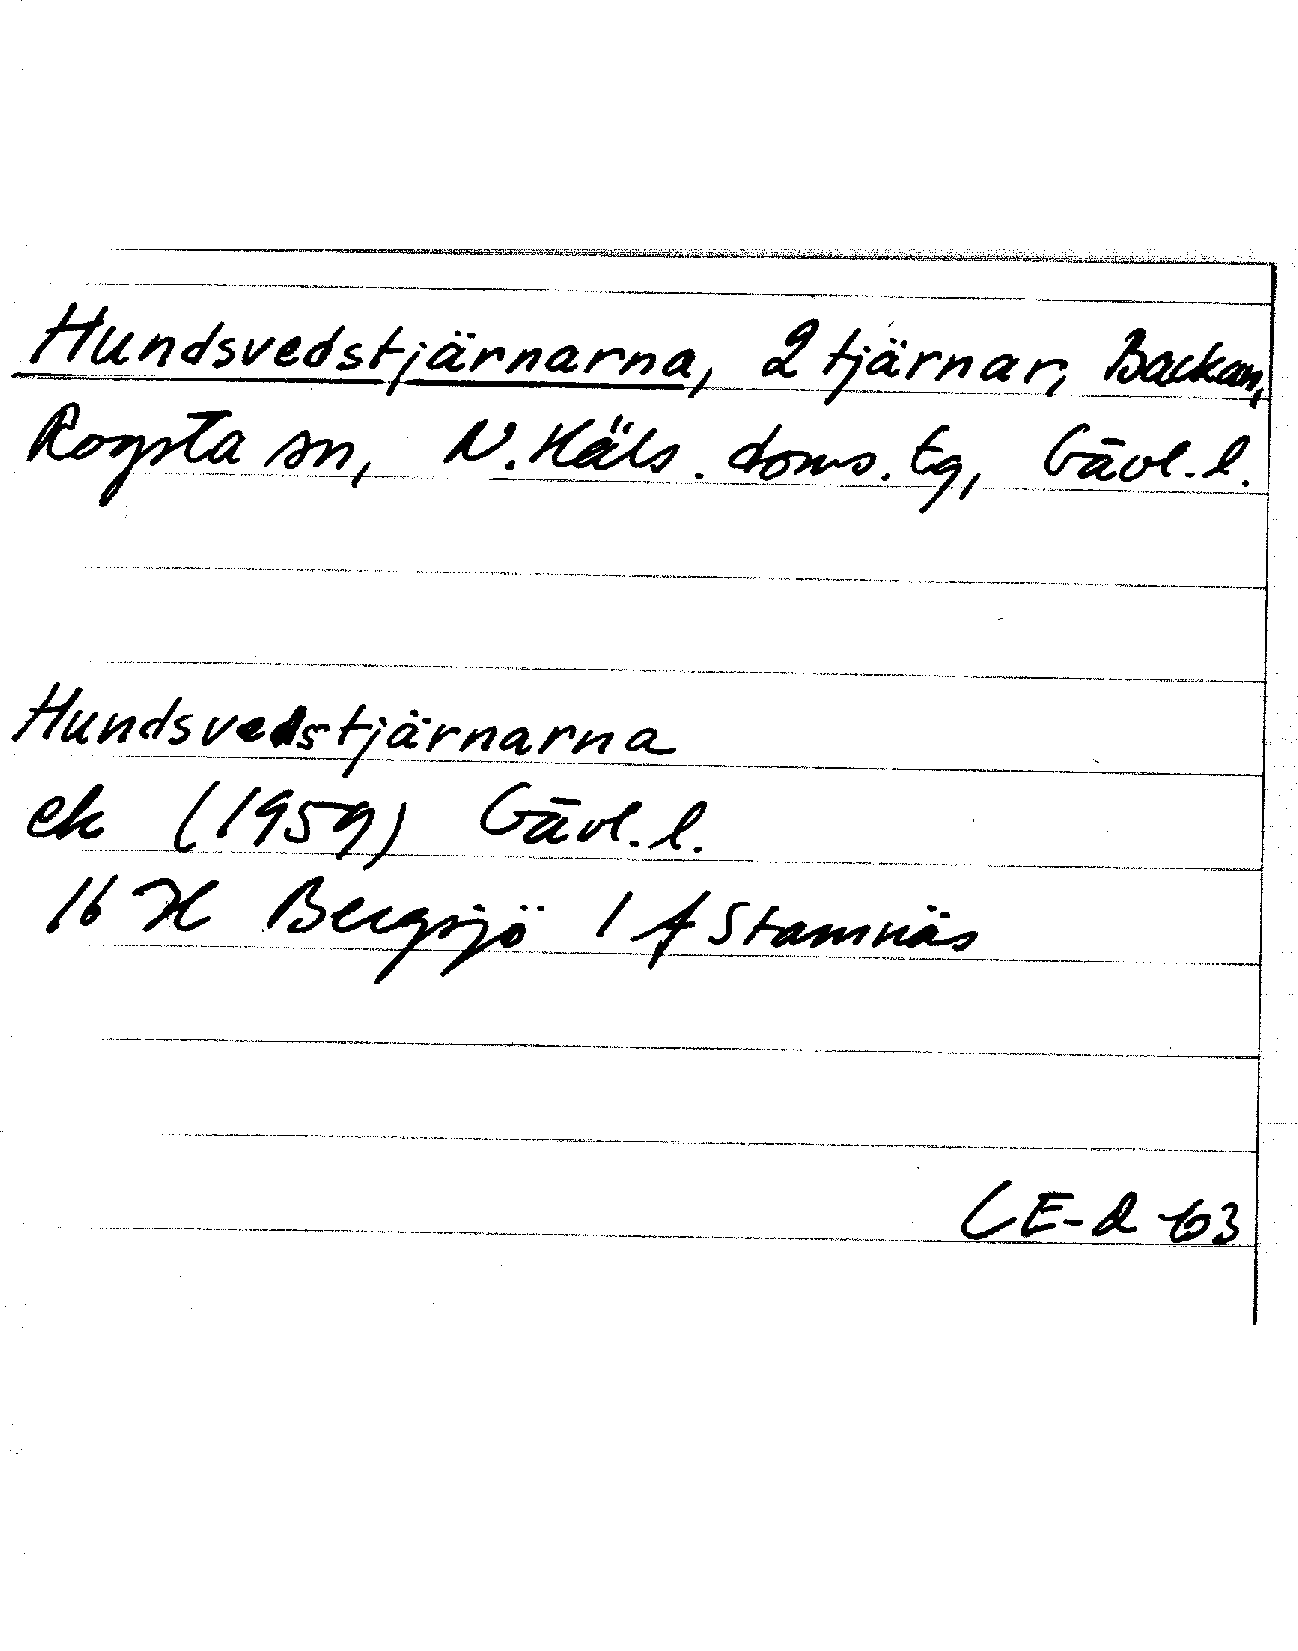 Hundsvedstjärnarna, 2 tjärnar, Backan,
Rogsta sn, N. Häls. doms. tg, Gävl. l.
Hundsvedstjärnarna
ek (1959) Gävl. l.
16 H Bergsjö 1 f Stamnäs
CE-d -63